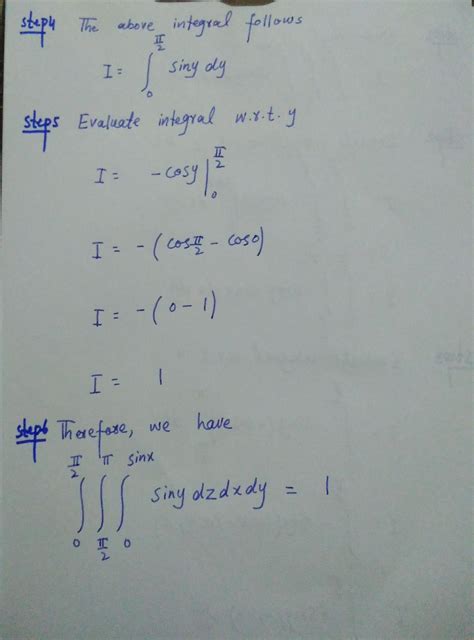 step4 The above integral follows
I = ∫₀^{π/2} siny dy
step5 Evaluate integral w.r.t. y
I = -cosy |₀^{π/2}
I = -(cos π/2 - cos0)
I = -(0 - 1)
I = 1
step6 Therefore, we have
∫₀^{π/2} ∫_{π/2}^{π} ∫₀^{sinx} siny dzdxdy = 1